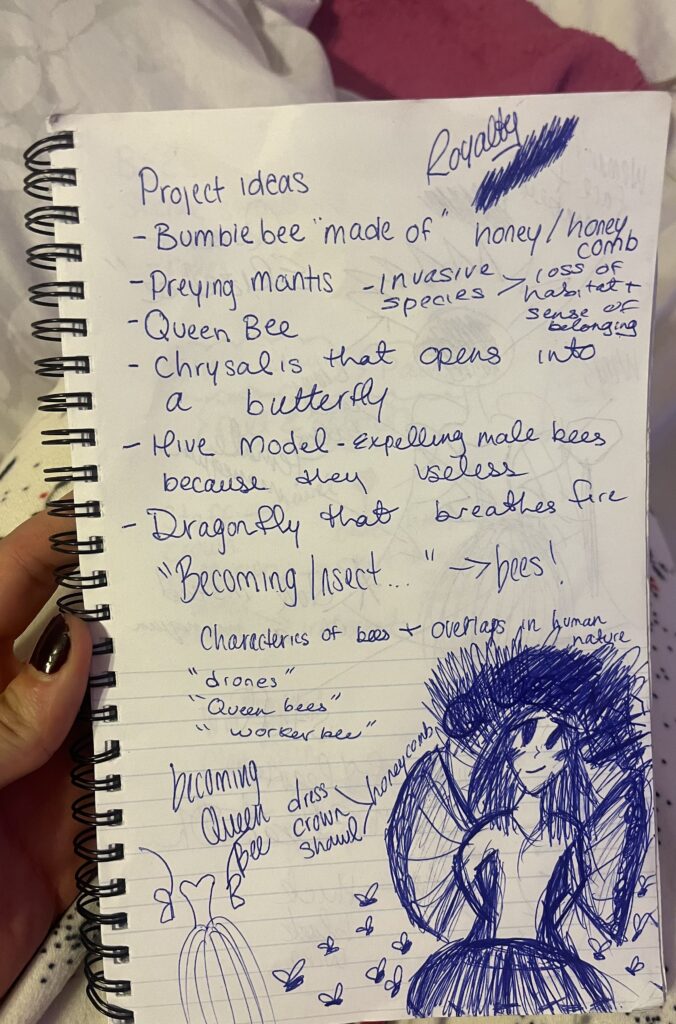 Royalty
Project ideas
- Bumble bee "made of" honey/honey
comb
- Preying mantis - invasive species > loss of habitat + sense of belonging
- Queen Bee
- Chrysalis that opens into
a butterfly
- Hive model - expelling male bees
because they useless
- Dragonfly that breathes fire
"Becoming Insect..." → bees!
Characterics of bees + overlaps in human
nature
"drones"
"Queen bees"
"worker bee"
becoming
Queen
Bee
dress
crown
shawl
honeycomb